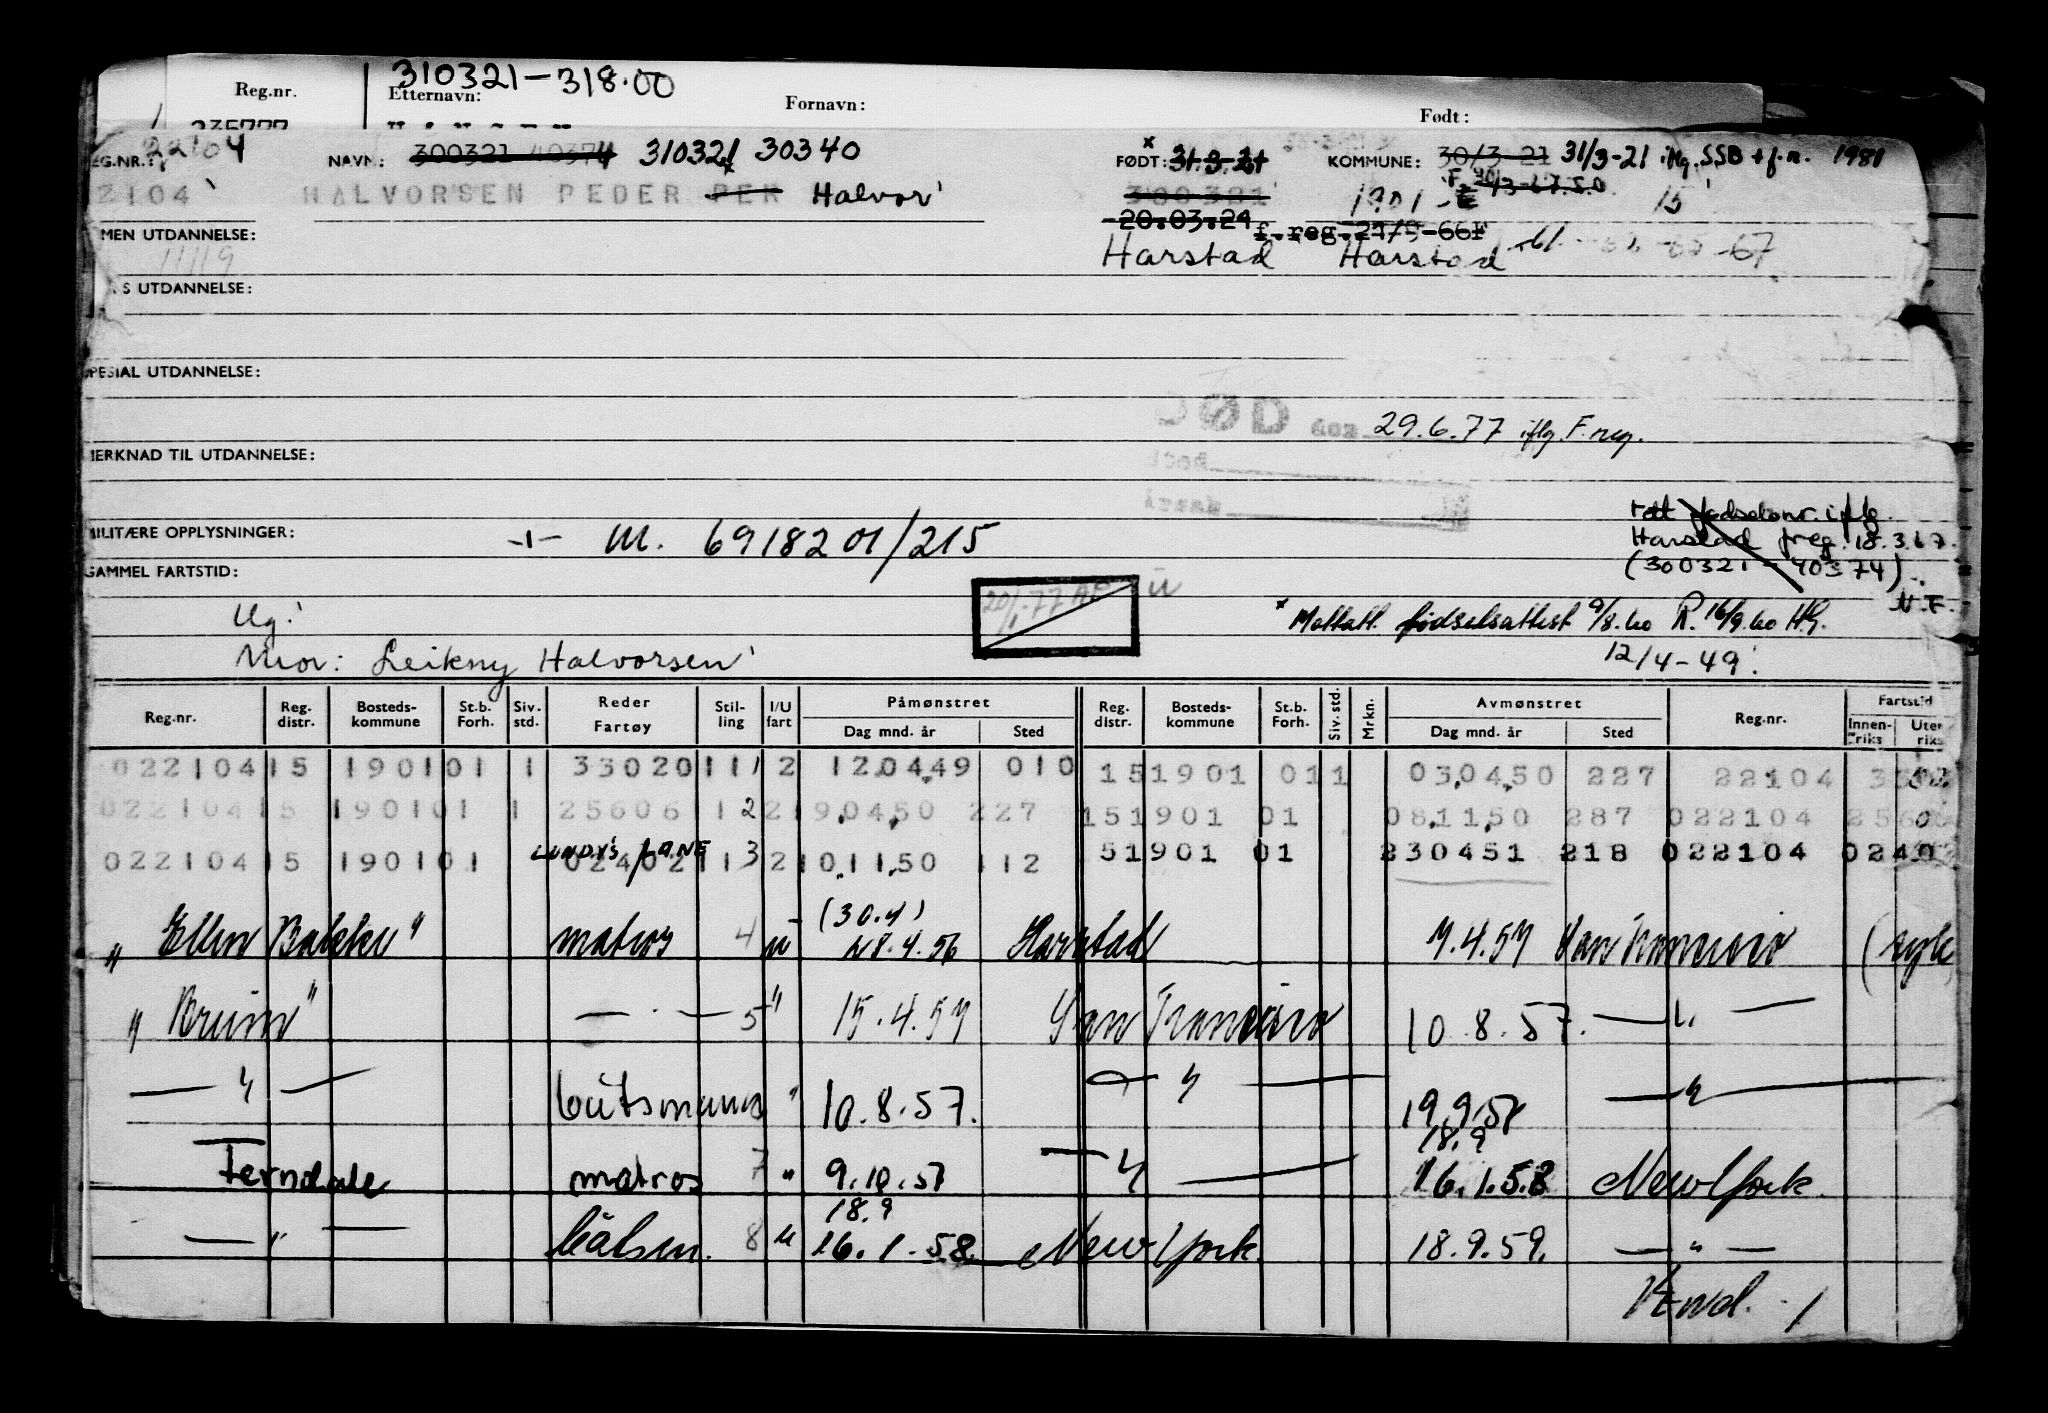 310321-318.00
Reg.nr. Etternavn: Fornavn: Født:
REG.NR.: 22104 NAVN: 300321 40374 310321 30340 FØDT: 31.3.21 KOMMUNE: 30/3-21 31/3-21 iflg. SSB + f.n. 1981
2104 HALVORSEN PEDER PER Halvor 300321 1901 15
20.03.24 f.reg.21/9-66F
MEN UTDANNELSE: Harstad Harstad -61 -65 -67
UTDANNELSE:
SPESIAL UTDANNELSE:
DØD den 29.6.77 iflg F.reg.
MERKNAD TIL UTDANNELSE:
Rett fødselsnr. iflg.
MILITÆRE OPPLYSNINGER: -1- M. 6918201/215 Harstad freg. 18.3.67.
GAMMEL FARTSTID: (300321-40374)
20/1-77 U N.F.
Ug. x Mottatt fødselsattest 9/8.60 R. 16/9.60 H.G.
Mor: Leikny Halvorsen 12/4-49
Reg.nr. Reg. distr. Bosteds-kommune St.b. Forh. Siv. std. Reder Fartøy Stil-ling I/U fart Påmønstret Dag mnd. år Sted Reg. distr. Bosteds-kommune St.b. Forh. Siv. std. Mrkn. Avmønstret Dag mnd. år Sted Reg.nr. Fartstid Innen-riks Uten-riks
022104 15 1901 01 1 33020 11 1 2 12.04.49 010 15 1901 01 1 03.04.50 227 22104
022104 15 1901 01 1 25606 1 2 2 19.04.50 227 15 1901 01 08.11.50 287 022104
LUNDY'S LANE
022104 15 1901 01 02402 11 3 2 10.11.50 112 51901 01 230451 218 022104 0240
(30.4)
"Ellen Bakke" matros 4 u 28.4.56 Harstad 7.4.57 San Francisco
"Bruin" — " — 5 " 15.4.57 San Francisco 10.8.57. — " —
— " — båtsmann " 10.8.57. — " — 19.9.57 — " —
18.9
Ferndale matros 7 " 9.10.57 — " — 16.1.58 New York
18.9
— " — båtsm. 8 u 16.1.58. New York 18.9.59. — " —
Vend. /